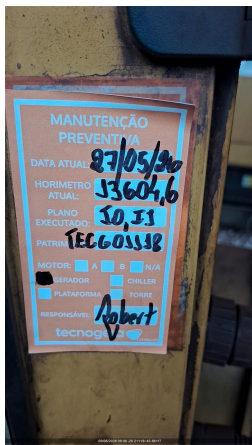 MANUTENÇÃO
PREVENTIVA
DATA ATUAL: 27/05/26
HORIMETRO ATUAL: 13604,6
PLANO EXECUTADO: IO, II
MOTOR: A B N/A
GERADOR CHILLER
PLATAFORMA TORRE
RESPONSÁVEL: Robert
tecnogera